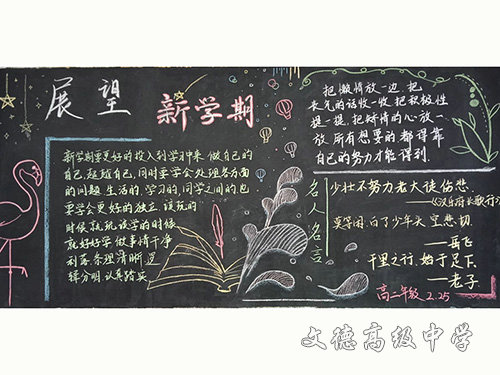 展望
新学期
新学期要更好的投入到学习中来 做自己的
自己,超越自己,同时要学会处理各方面
的问题 生活的,学习的,同学之间的 也
要学会更好的独立 该玩的
时候就玩 该学的时候
就好好学 做事情干净
利落 条理清晰 逻
辑分明 认真踏实
把懒惰放一边 把
丧气的话收一收 把积极性
提一提 把矫情的心放一
放 所有想要的 都得靠
自己的努力才能得到
名人名言
少壮不努力老大徒伤悲
——《汉乐府长歌行》
莫等闲,白了少年头 空悲切
——岳飞
千里之行,始于足下
——老子
高二年级 2.25
文德高级中学